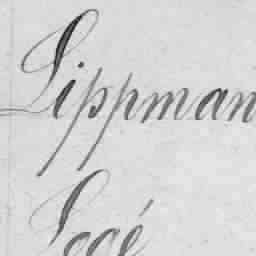 Lippman
Legé